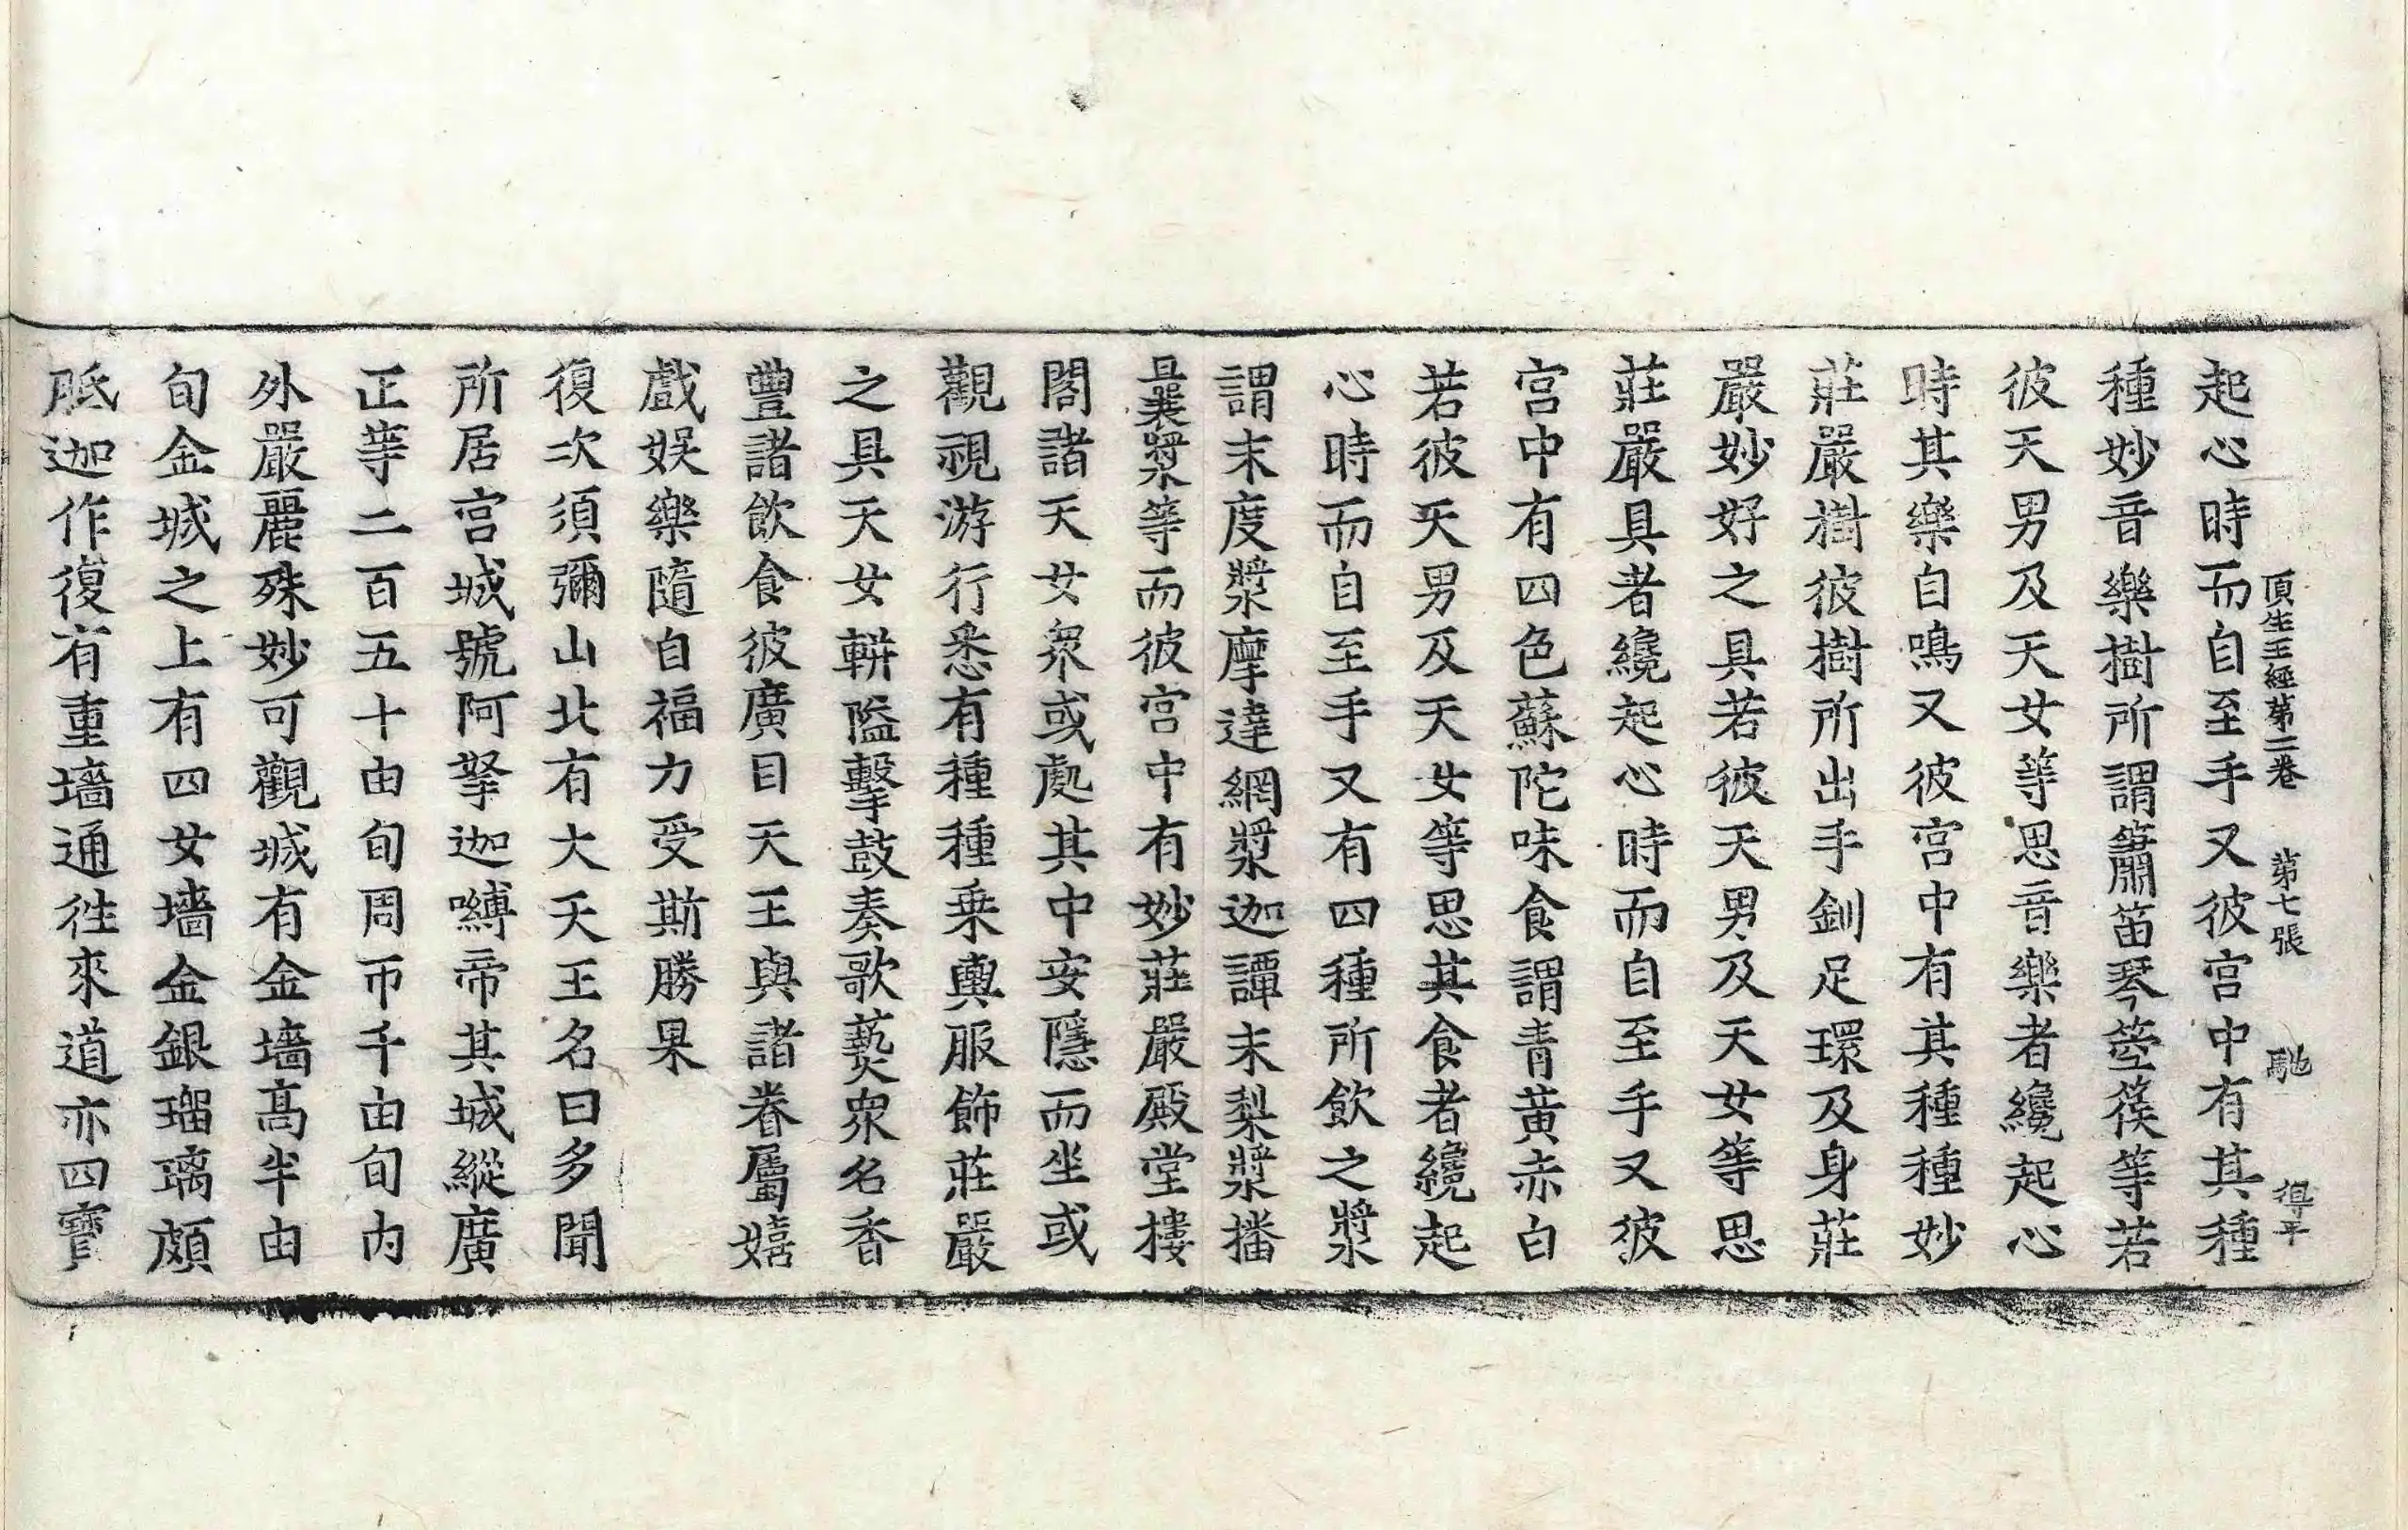 頂生王經第二卷 第七張 馳 得平
起心時而自至手又彼宮中有其種
種妙音樂樹所謂簫笛琴箜篌等若
彼天男及天女等思音樂者纔起心
時其樂自鳴又彼宮中有其種種妙
莊嚴樹彼樹所出手釧足環及身莊
嚴妙好之具若彼天男及天女等思
莊嚴具者纔起心時而自至手又彼
宮中有四色蘇陀味食謂青黃赤白
若彼天男及天女等思其食者纔起
心時而自至手又有四種所飲之漿
謂末度漿摩達網漿迦譚末梨漿播
曩漿等而彼宮中有妙莊嚴殿堂樓
閣諸天女衆或處其中安隱而坐或
觀視游行悉有種種乗輿服飾莊嚴
之具天女輧隘擊鼓奏歌爇衆名香
豐諸飲食彼廣目天王與諸眷屬嬉
戲娛樂隨自福力受斯勝果
復次須彌山北有大天王名曰多聞
所居宮城號阿拏迦嚩帝其城縱廣
正等二百五十由旬周帀千由旬内
外嚴麗殊妙可觀城有金墻高半由
旬金城之上有四女墻金銀瑠璃頗
胝迦作復有重墻通徃來道亦四寶